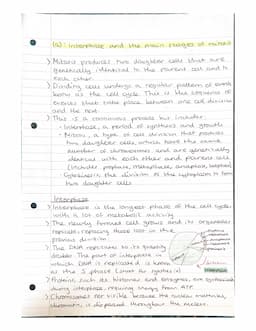 (a): Interphase and the main stages of mitosis
> Mitosis produces two daughter cells that are
genetically identical to the parent cell and to
each other.
> Dividing cells undergo a regular pattern of events
known as the cell cycle. This is the sequence of
events that take place between one cell division
and the next.
> This is a continuous process but includes:
- Interphase, a period of synthesis and growth
- Mitosis, a type of cell division that produces
two daughter cells, which have the same
number of chromosomes, and are genetically
identical with each other and parent cell
(includes prophase, metaphase, anaphase, telophase)
- Cytokinesis, the division of the cytoplasm to form
two daughter cells
Interphase
> Interphase is the longest phase of the cell cycle,
with a lot of metabolic activity
> The newly formed cell grows and its organelles
replicate, replacing those lost in the
previous division
> The DNA replicates to its
double. The part of interphase in
which DNA is replicated is known
as the S phase (short for synthesis)
> Proteins, such as histones and enzymes, are synthesised
during interphase, requiring energy from ATP.
> Chromosomes not visible because the nuclear material,
chromatin, is dispersed throughout the nucleus.